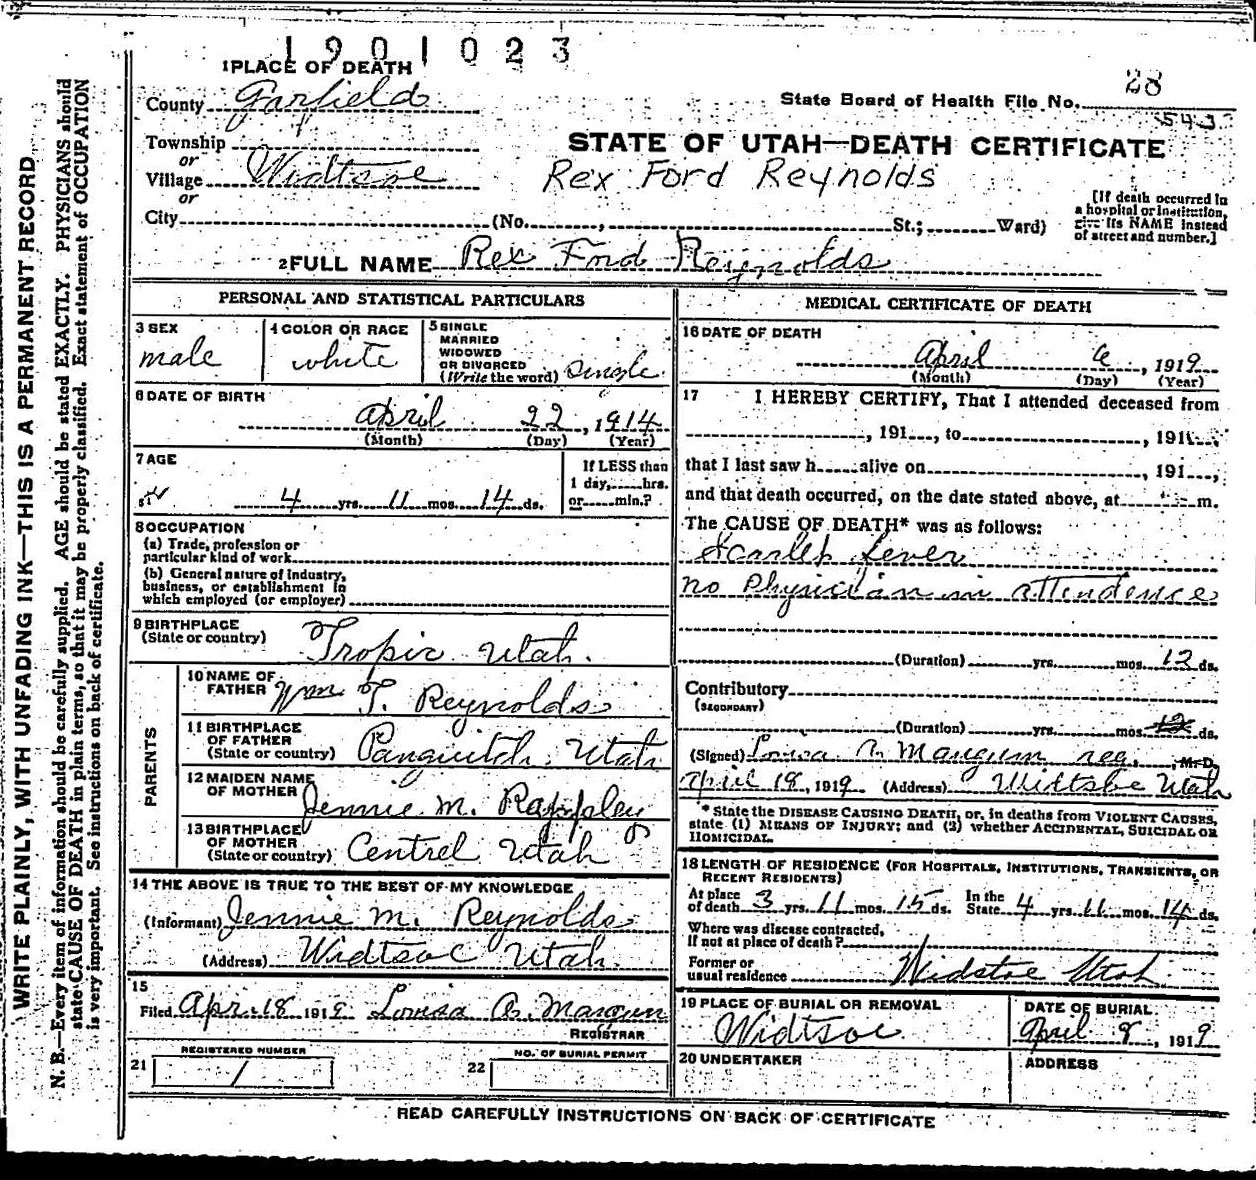 1901023
1 PLACE OF DEATH
County Garfield
State Board of Health File No. 28
543
Township
or
Village Widtsoe
or
City (No. , St.; Ward)
STATE OF UTAH—DEATH CERTIFICATE
Rex Ford Reynolds
[If death occurred in
a hospital or institution,
give its NAME instead
of street and number.]
2 FULL NAME Rex Ford Reynolds
PERSONAL AND STATISTICAL PARTICULARS
3 SEX
male
4 COLOR OR RACE
white
5 SINGLE
MARRIED
WIDOWED
OR DIVORCED
(Write the word) single
6 DATE OF BIRTH
April 22, 1914
(Month) (Day) (Year)
7 AGE
4 yrs. 11 mos. 14 ds.
If LESS than
1 day, hrs.
or min.?
8 OCCUPATION
(a) Trade, profession or
particular kind of work
(b) General nature of industry,
business, or establishment in
which employed (or employer)
9 BIRTHPLACE
(State or country)
Tropic Utah.
PARENTS
10 NAME OF
FATHER Wm T. Reynolds
11 BIRTHPLACE
OF FATHER
(State or country) Panguitch, Utah
12 MAIDEN NAME
OF MOTHER Jennie M. Rappley
13 BIRTHPLACE
OF MOTHER
(State or country) Centrel Utah
14 THE ABOVE IS TRUE TO THE BEST OF MY KNOWLEDGE
(Informant) Jennie M. Reynolds
(Address) Widtsoe Utah.
15
Filed Apr. 18 1919 Louisa A. Mangum
REGISTRAR
21 REGISTERED NUMBER
1
22 NO. OF BURIAL PERMIT
MEDICAL CERTIFICATE OF DEATH
16 DATE OF DEATH
April 6, 1919
(Month) (Day) (Year)
17 I HEREBY CERTIFY, That I attended deceased from
, 191 , to , 191 ,
that I last saw h alive on , 191 ,
and that death occurred, on the date stated above, at m.
The CAUSE OF DEATH* was as follows:
Scarlet fever
no Physician in attendence
(Duration) yrs. mos. 12 ds.
Contributory
(SECONDARY)
(Duration) yrs. mos. 12 ds.
(Signed) Louisa A. Mangum reg. , M.D.
April 18, 1919 (Address) Widtsoe Utah
* State the DISEASE CAUSING DEATH, or, in deaths from VIOLENT CAUSES,
state (1) MEANS OF INJURY; and (2) whether ACCIDENTAL, SUICIDAL OR
HOMICIDAL.
18 LENGTH OF RESIDENCE (FOR HOSPITALS, INSTITUTIONS, TRANSIENTS, OR
RECENT RESIDENTS)
At place
of death 3 yrs. 11 mos. 15 ds.
In the
State 4 yrs. 11 mos. 14 ds.
Where was disease contracted,
if not at place of death?
Former or
usual residence Widstoe Utah
19 PLACE OF BURIAL OR REMOVAL
Widtsoe
DATE OF BURIAL
April 8, 1919
20 UNDERTAKER
ADDRESS
READ CAREFULLY INSTRUCTIONS ON BACK OF CERTIFICATE
WRITE PLAINLY, WITH UNFADING INK—THIS IS A PERMANENT RECORD
N. B.—Every item of information should be carefully supplied. AGE should be stated EXACTLY. PHYSICIANS should
state CAUSE OF DEATH in plain terms, so that it may be properly classified. Exact statement of OCCUPATION
is very important. See instructions on back of certificate.